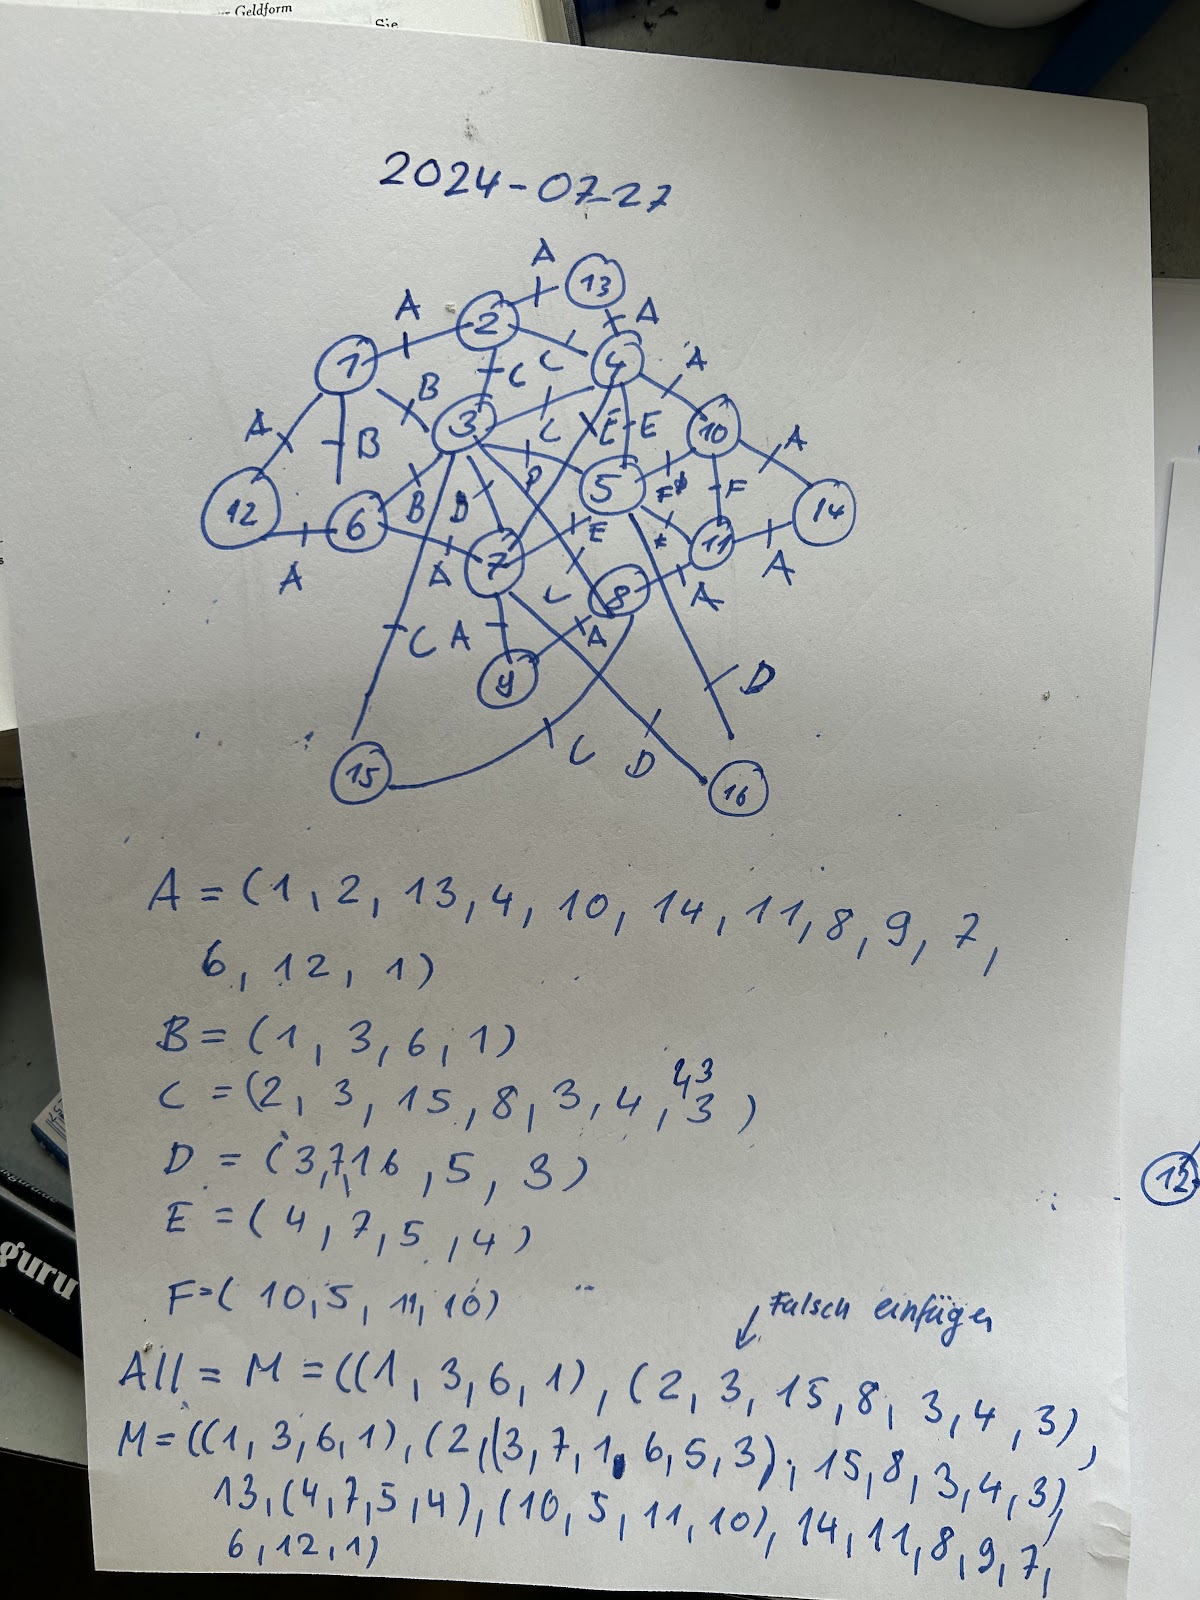 Geldform
Sie
2024-07-27
A
13
A
2
A
4
C
A
1
C
B
3
C
E
E
10
A
A
B
5
F
F
14
12
6
B
D
D
7
E
11
A
A
A
C
8
A
A
C
A
9
D
15
C
D
16
A = (1, 2, 13, 4, 10, 14, 11, 8, 9, 7,
6, 12, 1)
B = (1, 3, 6, 1)
2, 3
C = (2, 3, 15, 8, 3, 4, 3)
D = (3,7,16, 5, 3)
12
E = (4, 7, 5, 4)
guru
F=( 10,5, 11, 10)
Falsch einfügen
All = M = ((1, 3, 6, 1), (2, 3, 15, 8, 3, 4, 3),
M = ((1, 3, 6, 1), (2, (3, 7, 1, 6, 5, 3), 15, 8, 3, 4, 3),
13, (4, 7, 5, 4), (10, 5, 11, 10), 14, 11, 8, 9, 7,
6, 12, 1)